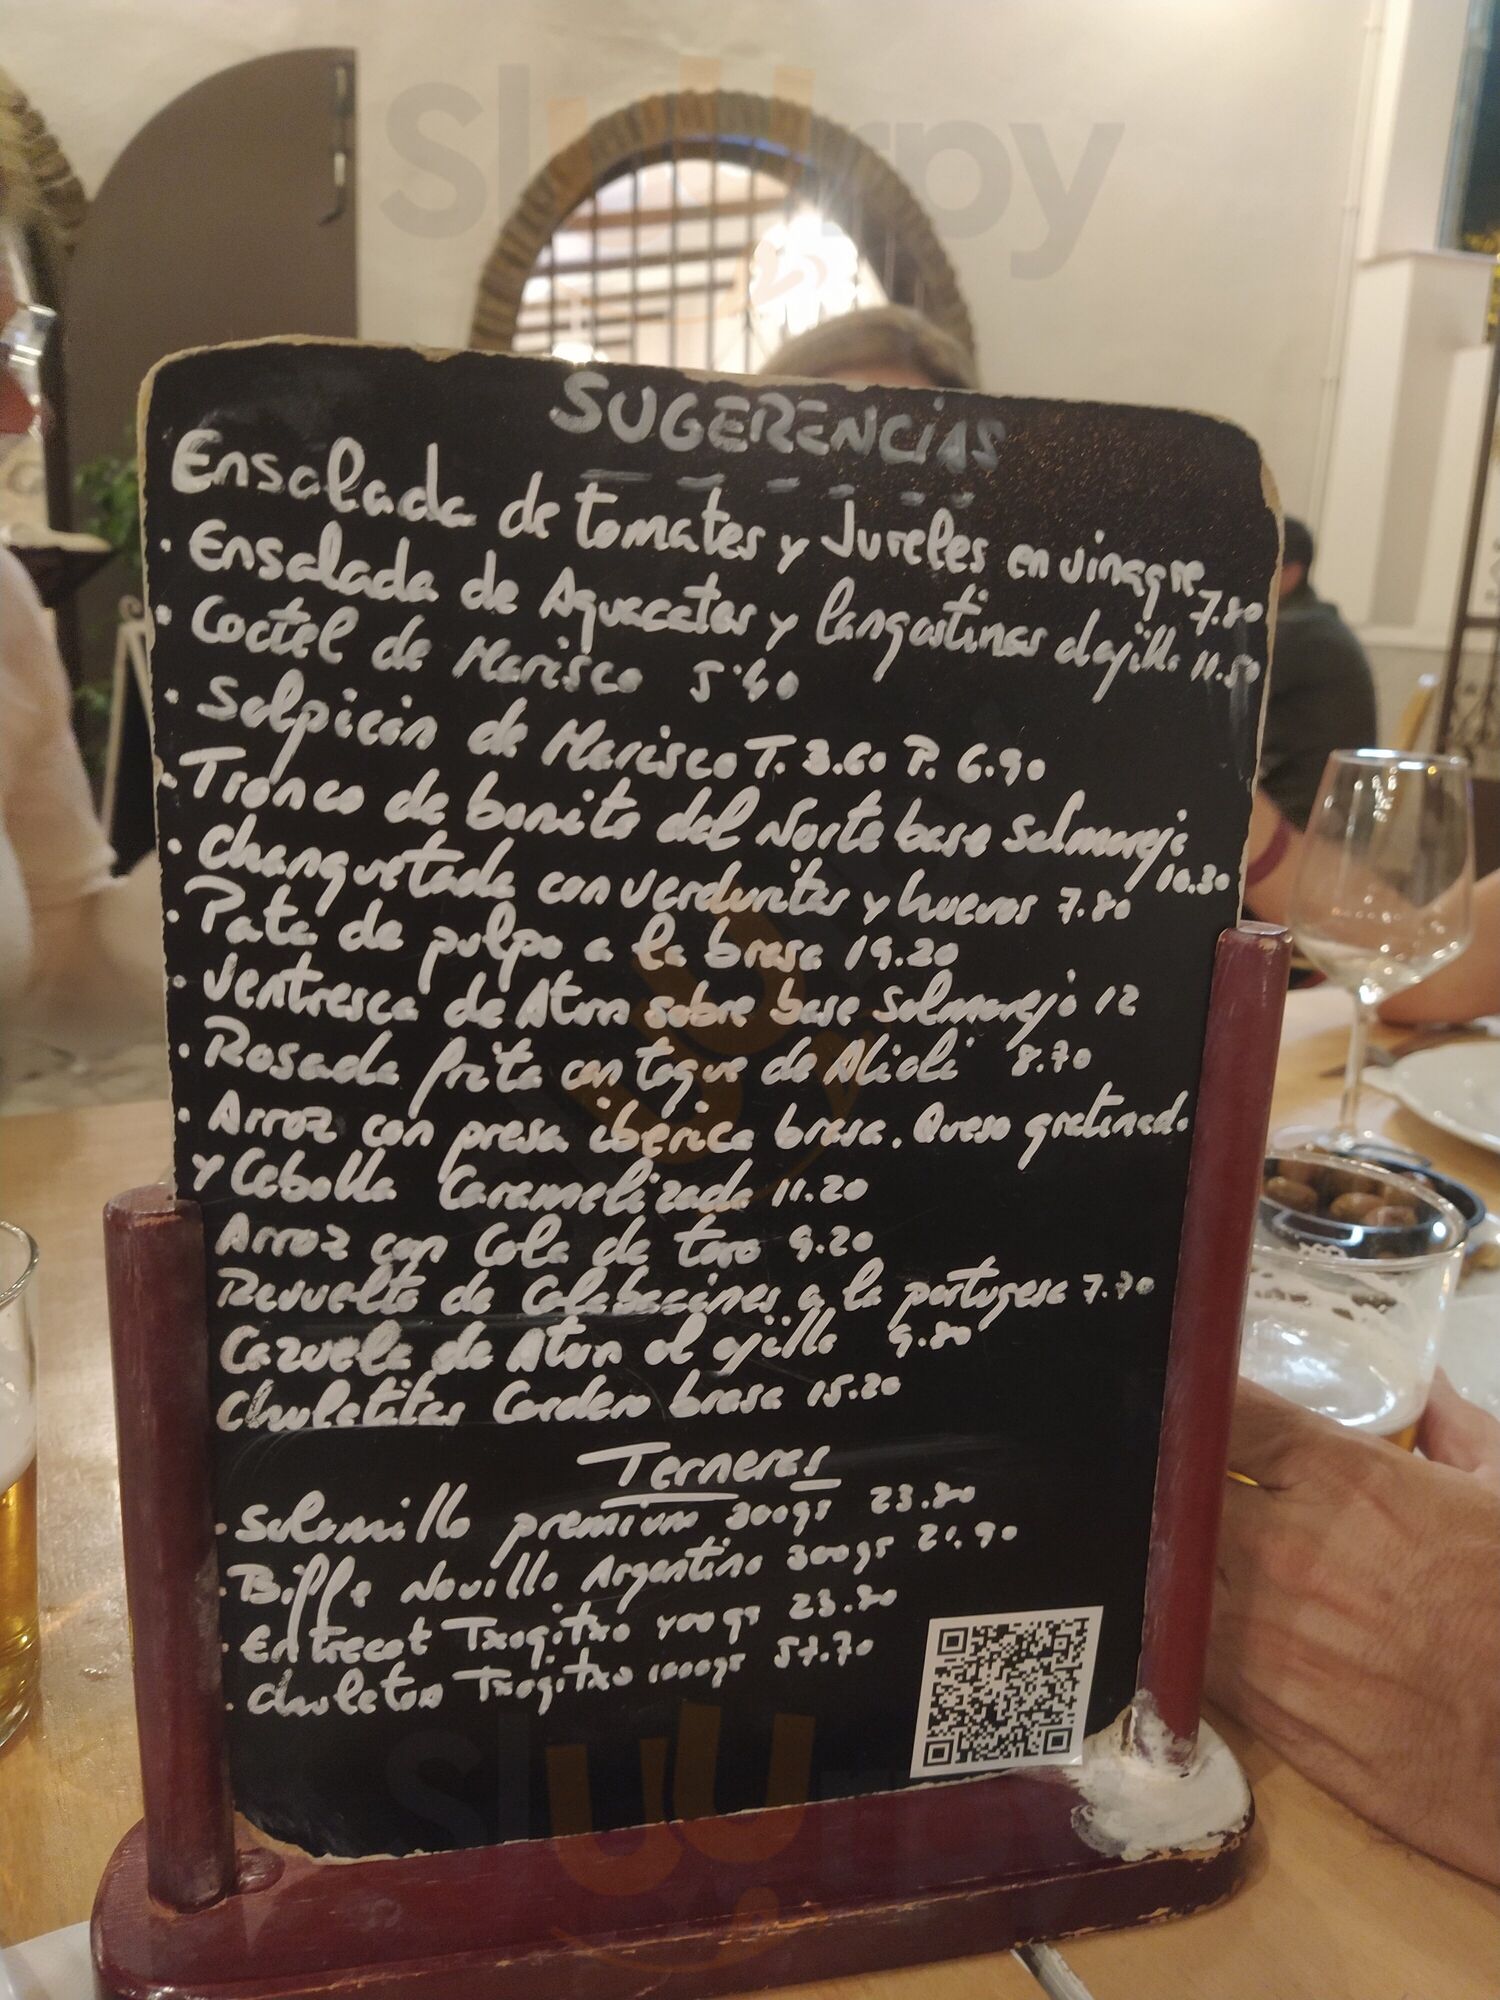 SUGERENCIAS
Ensalada de tomates y Jureles en vinagre 7.80
· Ensalada de Aguacates y langostinos al ajillo 11.50
· Coctel de Marisco 5'40
· Salpicón de Marisco T. 3.60 P. 6.90
· Tronco de bonito del Norte base Salmorejo 10.30
· Changuetada con verduritas y huevos 7.80
· Pata de pulpo a la brasa 19.20
· Ventresca de Atun sobre base Salmorejo 12
· Rosada frita con toque de Alioli 8.70
· Arroz con presa iberica brasa. Queso gratinado
y Cebolla Caramelizada 11.20
Arroz con Cola de toro 9.20
Revuelto de Calabacines a la portugesa
Cazuela de Atun al ajillo 9.80
Chuletitas Cordero brasa 15.20
Terneras
· Solomillo premium 300grs 23.80
· Biffe Novillo Argentino 300gr 21.90
· Entrecot Txogitxo 400gr
· Chuleton Txogitxo 1000gr
Sluurpy
Sluurpy